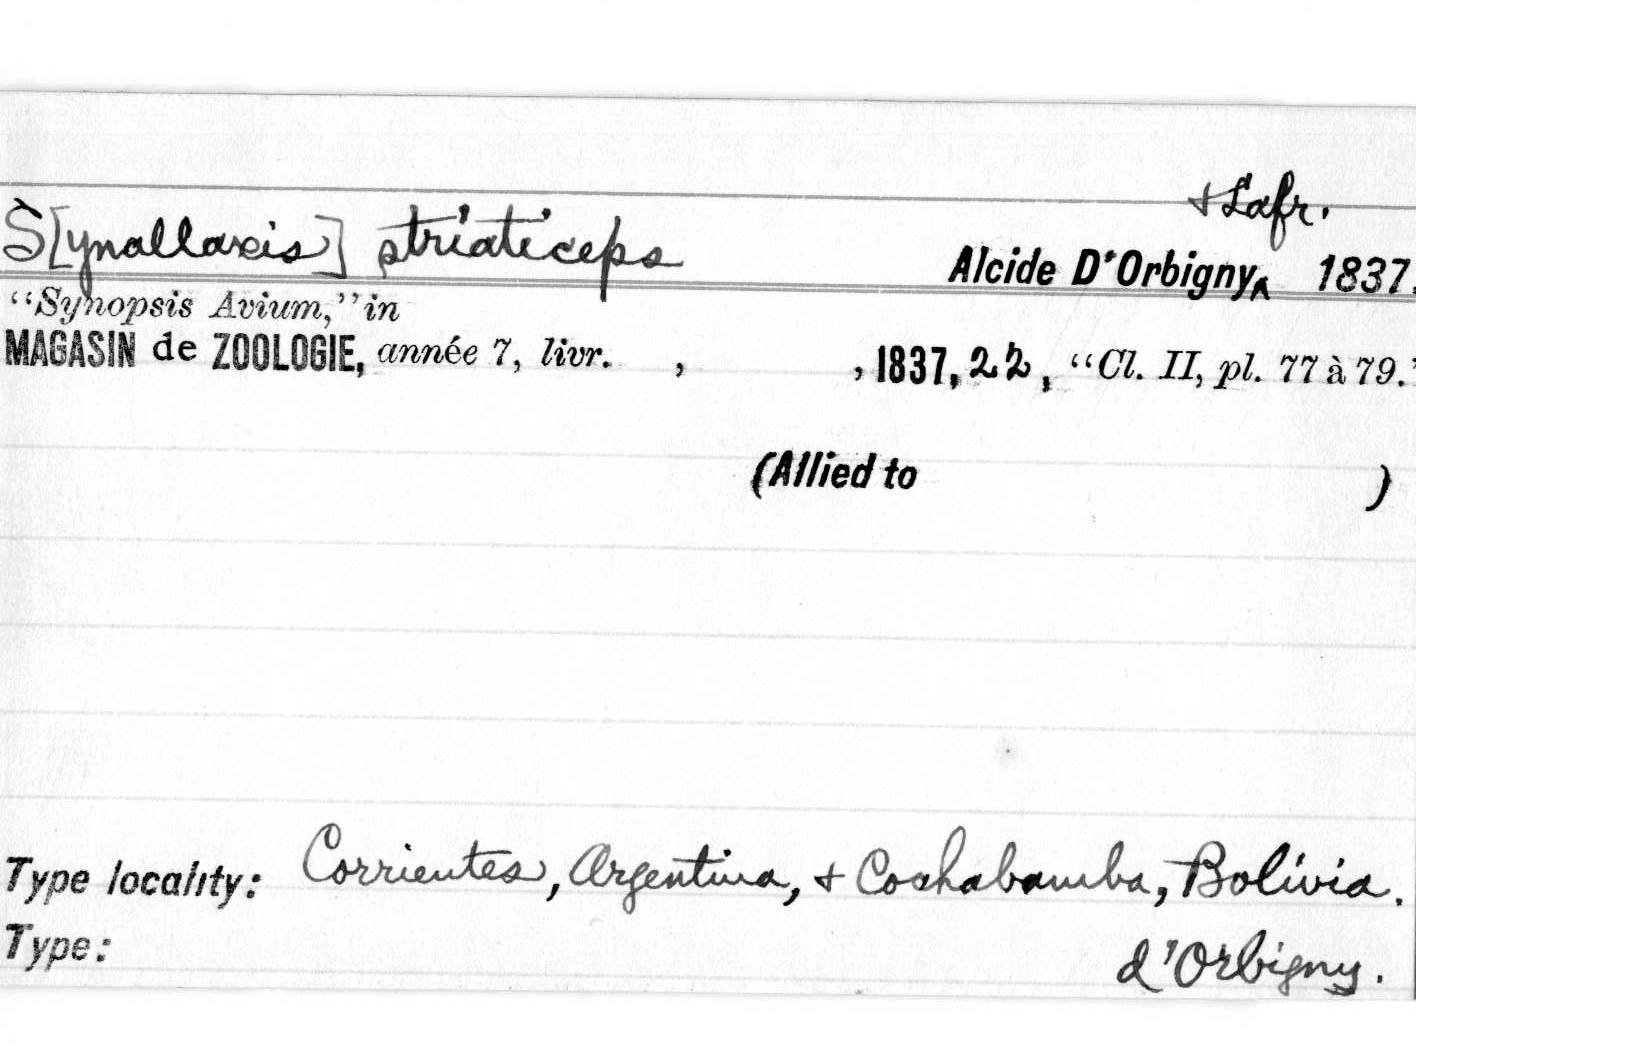 & Lafr.
S[ynallaxis] striaticeps Alcide D'Orbigny‸ 1837.
“Synopsis Avium,” in
MAGASIN de ZOOLOGIE, année 7, livr. , , 1837, 22, “Cl. II, pl. 77 à 79.”
(Allied to )
Type locality: Corrientes, Argentina, & Cochabamba, Bolivia.
Type: d'Orbigny.